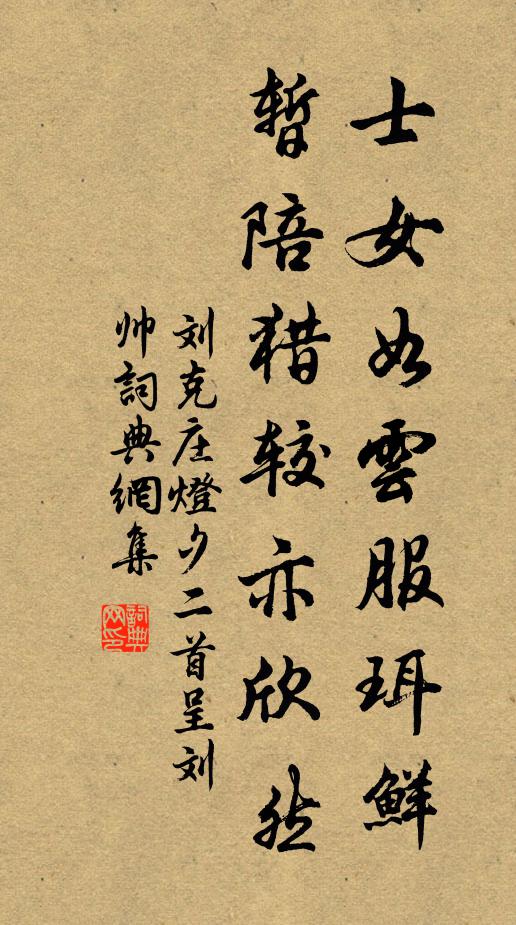 士女如雲服珥鮮
暫陪猎较亦欣然
刘克庄燈夕二首呈刘
帅詞典網集
詞典网印